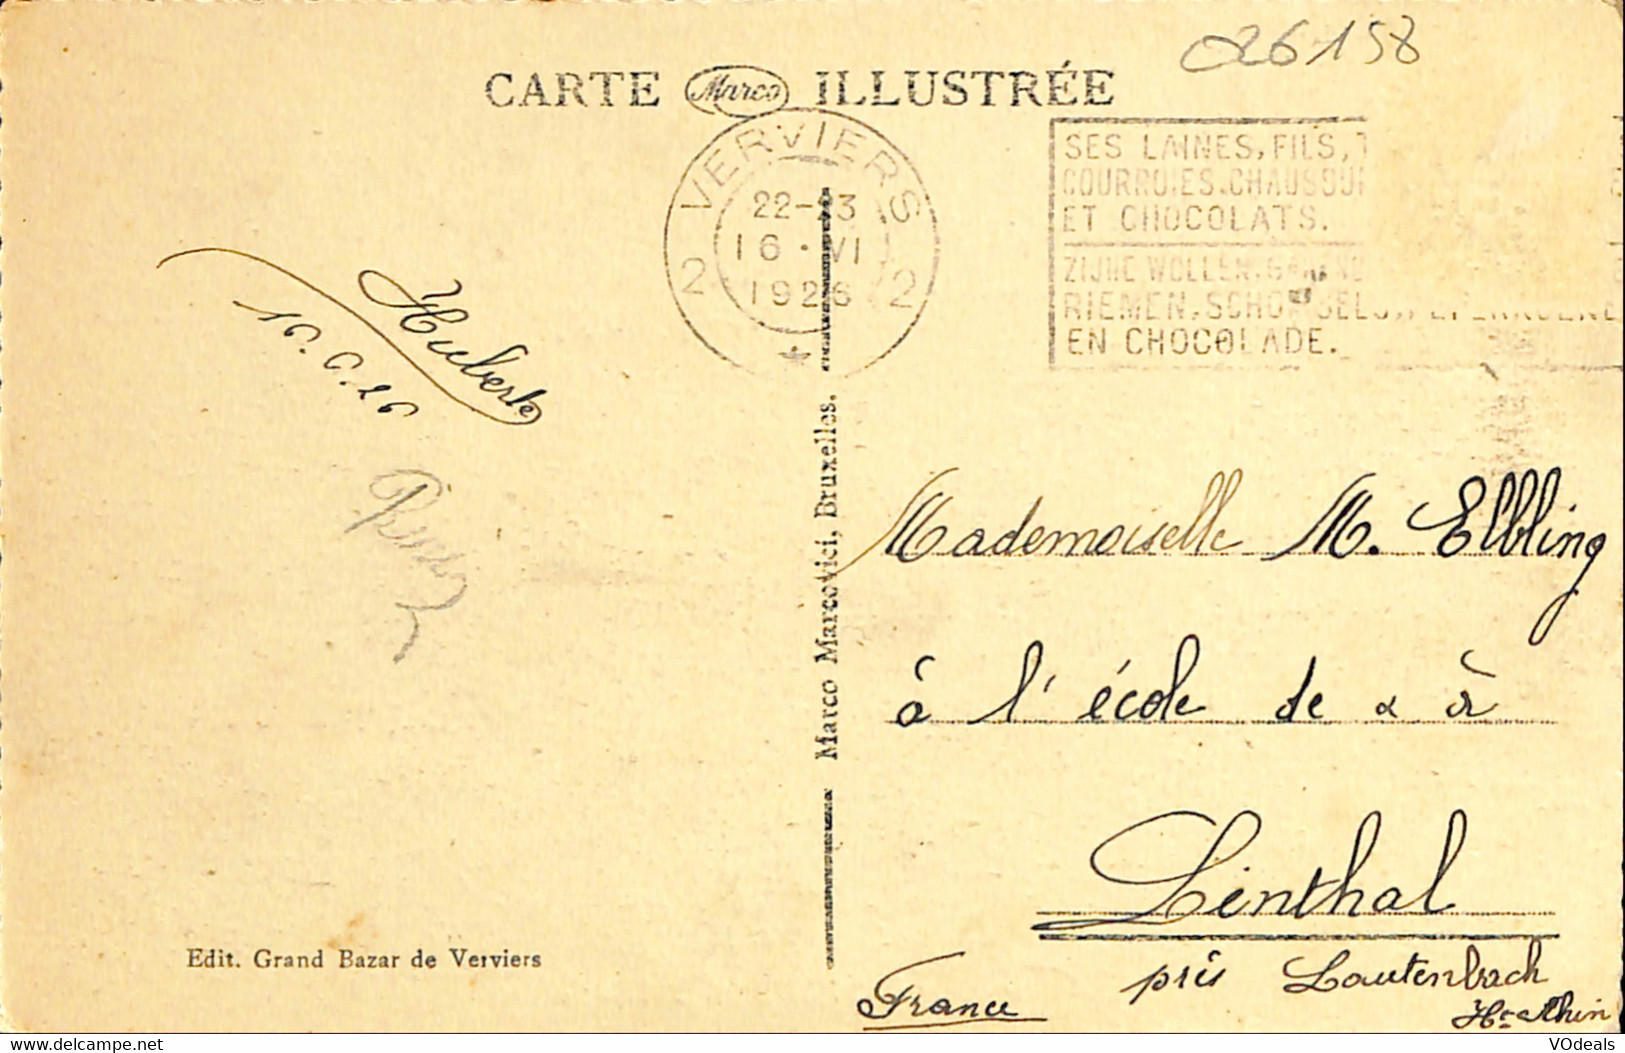 026158
CARTE Marco ILLUSTRÉE
VERVIERS
22-23
16·VI
1926
2 2
SES LAINES, FILS, T
COURROIES, CHAUSSU
ET CHOCOLATS.
ZIJNE WOLLEN, GARENS
RIEMEN, SCHOEISELS,
EN CHOCOLADE.
Huberte
16.6.26
Marco Marcovici, Bruxelles.
Mademoiselle M. Elbling
à l'école de à
Linthal
près Lautenbach
Ht Rhin
France
Edit. Grand Bazar de Verviers
VOdeals